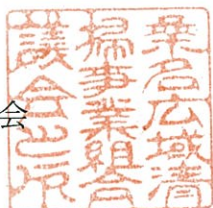 桑名広域清
掃事業組合
議会之印
会